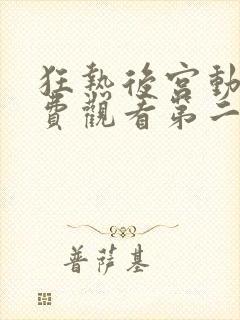 狂熱後宮動
費觀看第二
普薩基